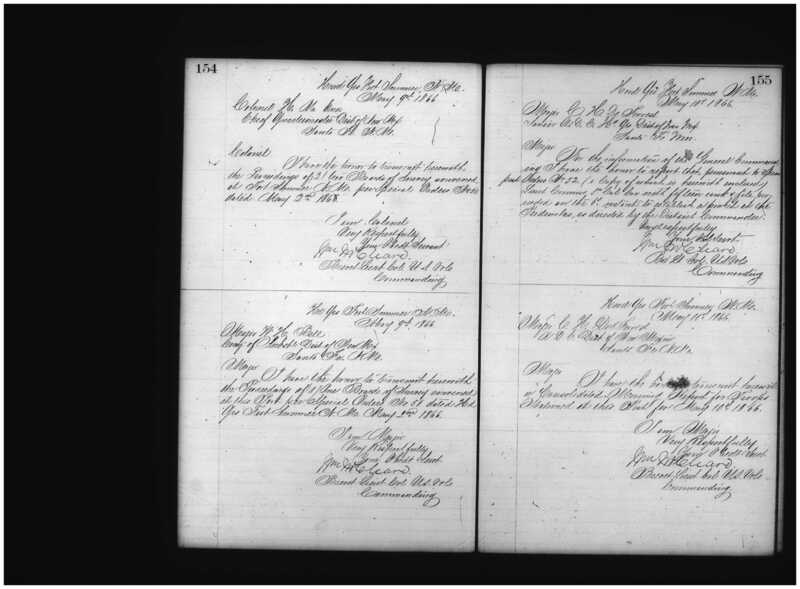 154
Head Qrs Fort Sumner N. Mx.
May 9th 1866
Colonel
Chief Quartermaster Dist of New Mex
Santa Fe N. Mx.
Colonel
I have the honor to transmit herewith
the Proceedings of 2 Two Boards of Survey convened
at Fort Sumner N. Mx. per Special Orders
dated May 2nd 1866
I am Colonel
Very Respectfully
Your Obedt Servant
Brevet Lieut Col. U.S. Vols
Commanding
Hd Qrs Fort Sumner N. Mx.
May 9th 1866
Major W. H. Bell
Comy of Subst Dist of New Mex
Santa Fe N. Mx.
Major
I have the honor to transmit herewith
the Proceedings of Boards of Survey convened
at this Post per Special Orders No 51 dated Hd
Qrs Fort Sumner N. Mx. May 2nd 1866.
I am Major
Very Respectfully
Your Obedt Servt
Brevet Lieut Col U.S. Vols
Commanding
155
Head Qrs Fort Sumner N. Mx.
May 10th 1866
Major C. H. De Forrest
Dist of New Mex
Santa Fe, N. M.
Major
For the information of the General Command
ing I have the honor to report that pursuant to
Orders No 52 (a copy of which is herewith enclosed)
Lieut 1st Cal Cav with fifteen rank & file
to establish a picket at the
as directed by the District Commander.
Very respectfully
Your Obt Servt
Bvt Lt Col. U.S. Vols
Commanding
Head Qrs Fort Sumner, N. Mx.
May 11th 1866
Major C. H. De Forrest
A.D.C. Dist of New Mexico
Santa Fe N. Mx
Major
I have the honor to transmit herewith
a Consolidated Morning Report for Troops
Stationed at this Post for May 10th 1866.
I am Major
Very Respectfully
Your Obedt Servt
Brevet Lieut Col U.S. Vols
Commanding